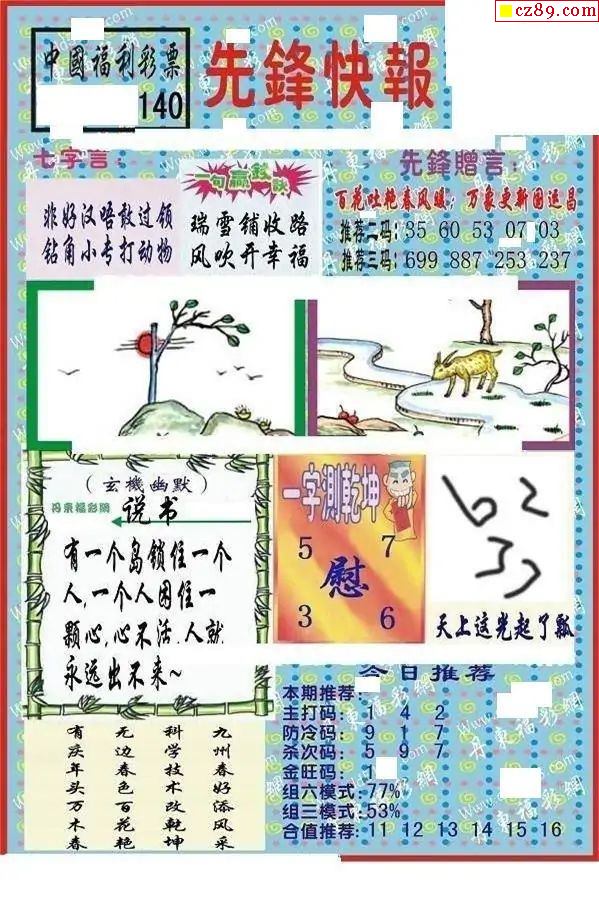 cz89.com
中國福利彩票
140
先鋒快報
七字言:
非好汉唔敢过领
钻角小专打动物
一句赢钱诀
瑞雪铺收路
风吹开幸福
先鋒贈言:
百花吐艳春风暖; 万象更新国运昌
推荐二码: 35 60 53 07 03
推荐三码: 699 887 253 237
(玄機幽默)
丹东福彩网
说书
有一个岛锁住一个
人,一个人困住一
颗心,心不活,人就
永远出不来~
一字測乾坤
5 7
慰
3 6
天上这光起了瓢
今日推荐
本期推荐:
主打码: 1 4 2
防冷码: 9 1 7
杀次码: 5 9 7
金旺码: 1
组六模式:77%
组三模式:53%
合值推荐: 11 12 13 14 15 16
九州春好添风采
科学技术改乾坤
无边春色百花艳
有庆年头万木春